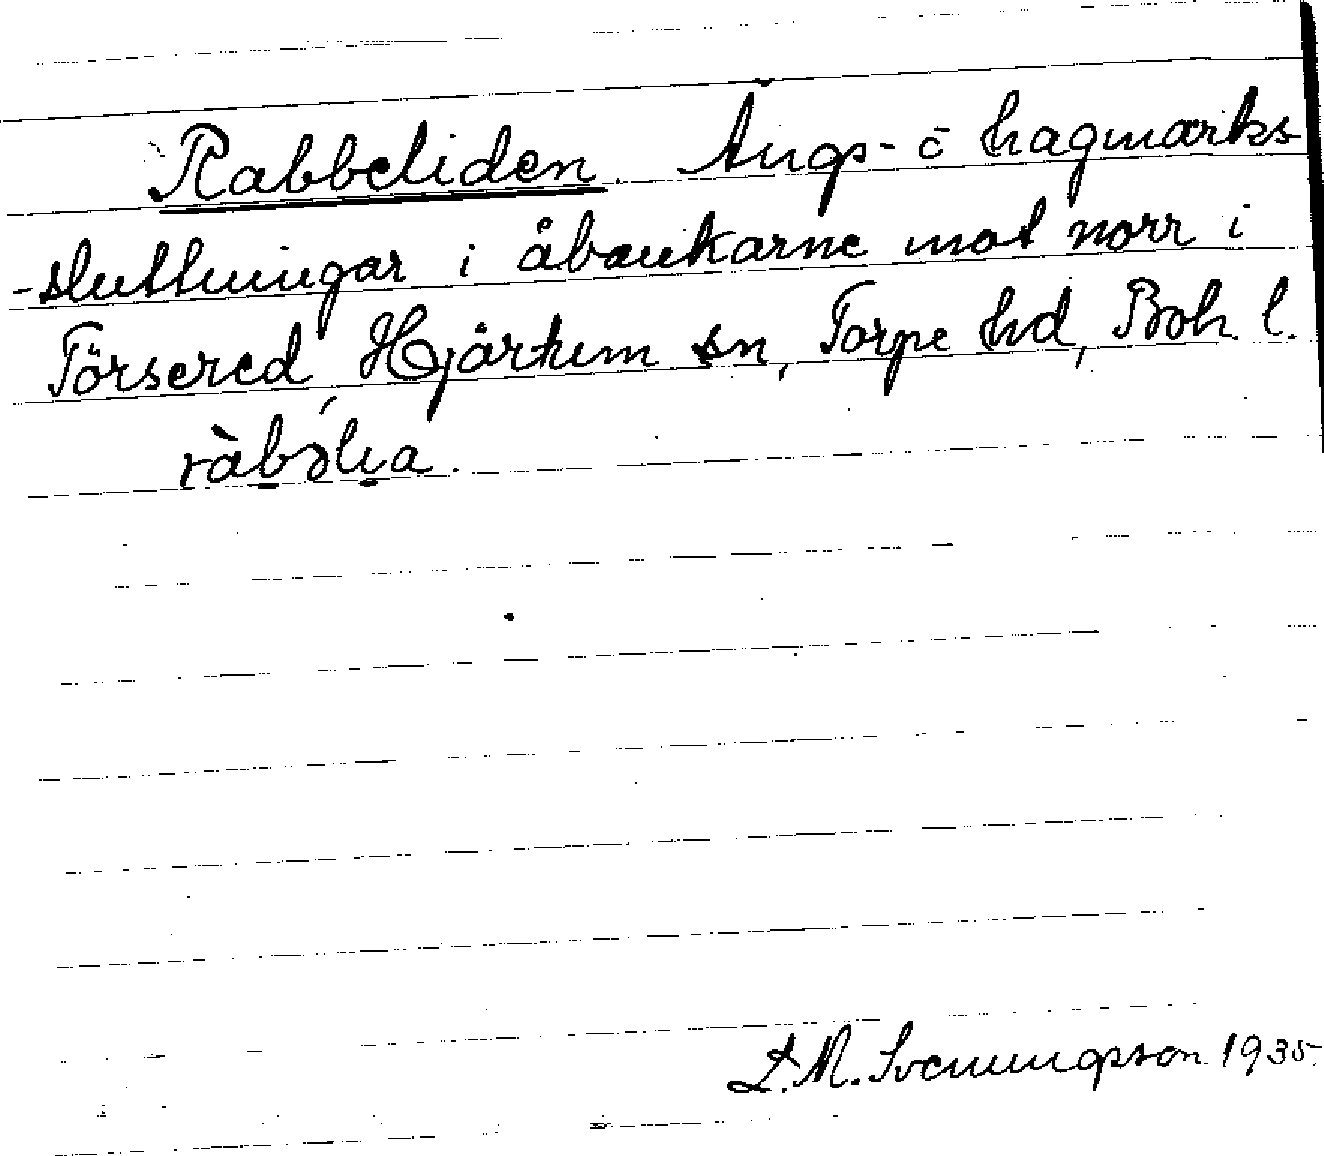 Rabbeliden. Ängs- o hagmarks
-sluttningar i åbankarne mot norr i
Törsered, Hjärtum sn, Torpe hd, Boh. l.
ràbə́lia.
L. M. Svenungsson 1935.